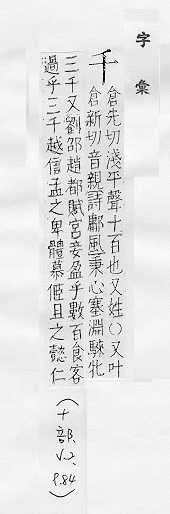 字彙
千
倉先切淺平聲十百也又姓○又叶
倉新切音親詩鄘風秉心塞淵騋牝
三千又劉邵趙都賦宮妾盈乎數百食客
過乎三千越信孟之卑體慕姬旦之懿仁
(十部、V.2、P.84)